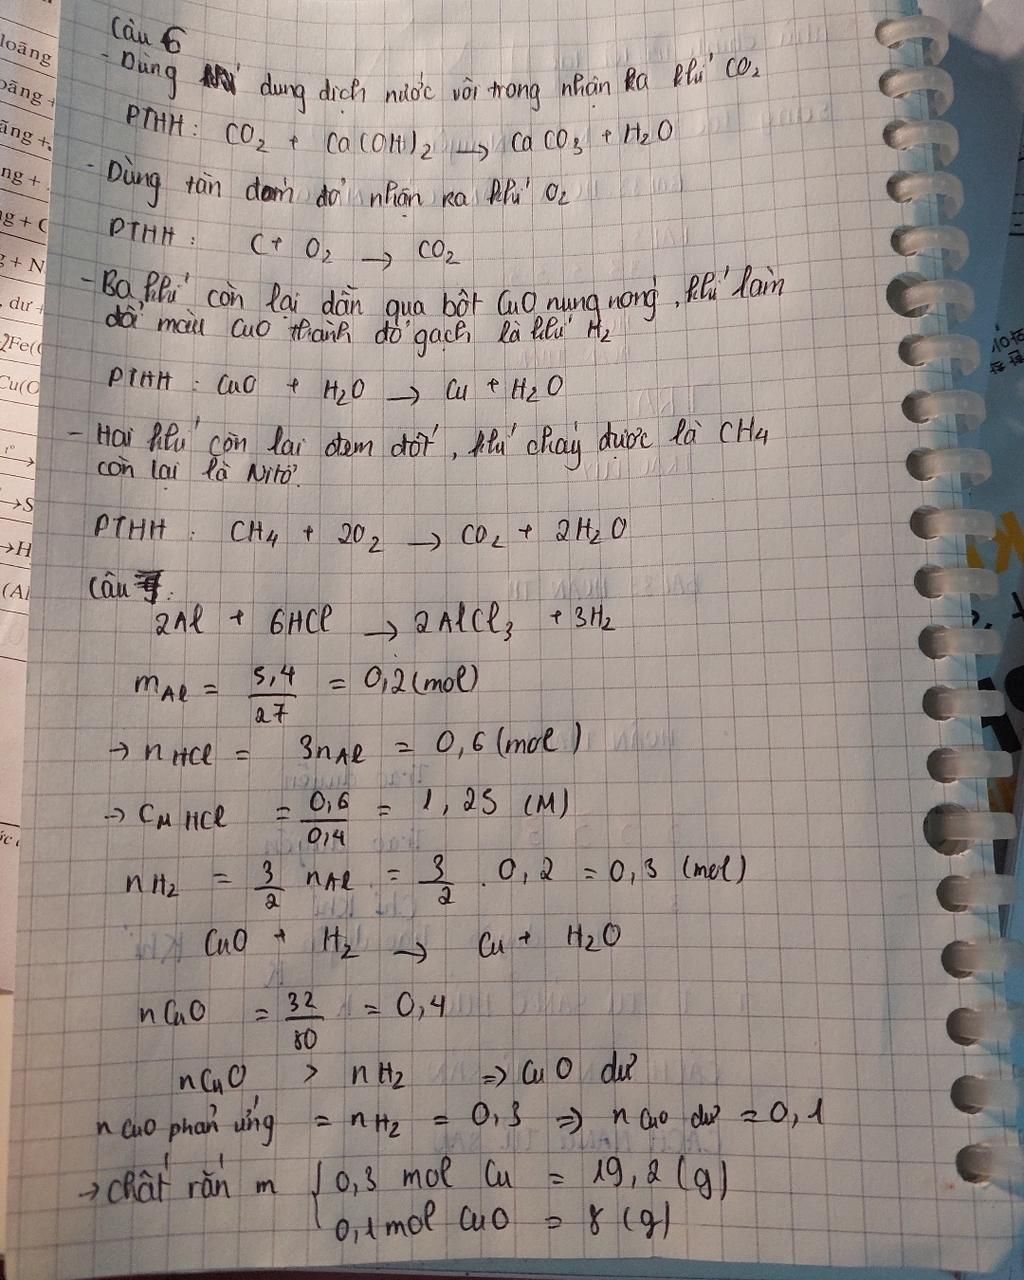 loãng
oãng +
ãng +
ng +
g + C
g + N
, dư +
2Fe(
Cu(O
t°
→S
→H
(Al
Câu 6
- Dùng dung dịch nước vôi trong nhận ra khí CO₂
PTHH: CO₂ + Ca(OH)₂ → CaCO₃ + H₂O
- Dùng tàn đóm đỏ nhận ra khí O₂
PTHH: C + O₂ → CO₂
- Ba khí còn lại dẫn qua bột CuO nung nóng, khí làm
đổi màu CuO thành đỏ gạch là khí H₂
PTHH: CuO + H₂O → Cu + H₂O
- Hai khí còn lại đem đốt, khí cháy được là CH₄
còn lại là Nitơ.
PTHH: CH₄ + 2O₂ → CO₂ + 2H₂O
Câu 7:
2Al + 6HCl → 2AlCl₃ + 3H₂
mAl = 5,4/27 = 0,2 (mol)
→ nHCl = 3nAl = 0,6 (mol)
→ CM HCl = 0,6/0,4 = 1,25 (M)
nH₂ = 3/2 nAl = 3/2 . 0,2 = 0,3 (mol)
CuO + H₂ → Cu + H₂O
nCuO = 32/80 = 0,4
nCuO > nH₂ ⇒ CuO dư
nCuO phản ứng = nH₂ = 0,3 ⇒ nCuO dư = 0,1
→ chất rắn m { 0,3 mol Cu = 19,2 (g)
0,1 mol CuO = 8 (g)